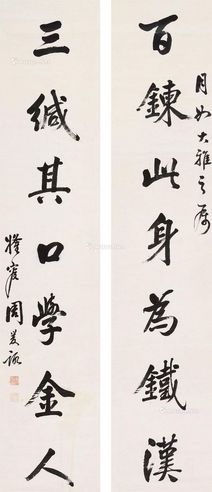 月如大雅之属
百鍊此身為鐵漢
三緘其口學金人
周